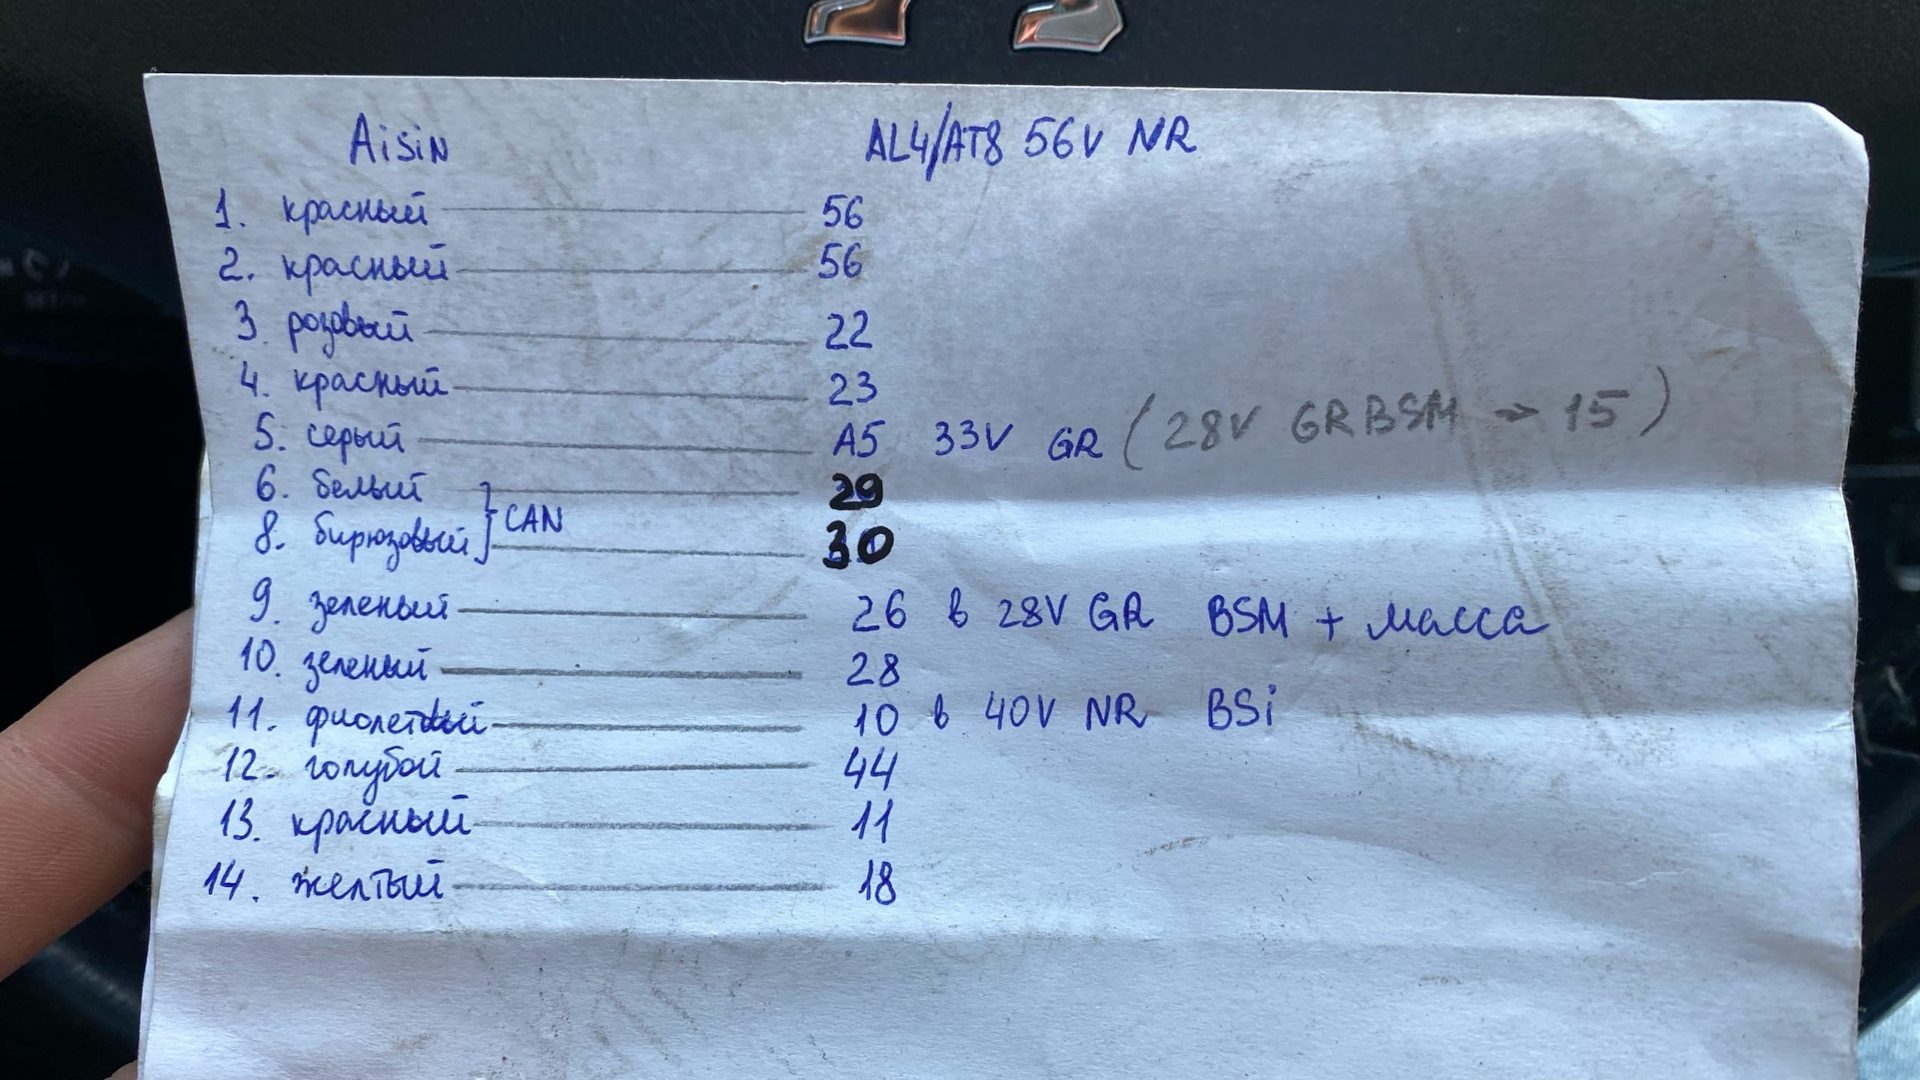 Aisin AL4/AT8 56V NR
1. красный 56
2. красный 56
3. розовый 22
4. красный 23
5. серый A5 33V GR (28V GR BSM → 15)
6. белый 29
CAN
8. бирюзовый 30
9. зеленый 26 в 28V GR BSM + масса
10. зеленый 28
11. фиолетовый 10 в 40V NR BSi
12. голубой 44
13. красный 11
14. желтый 18